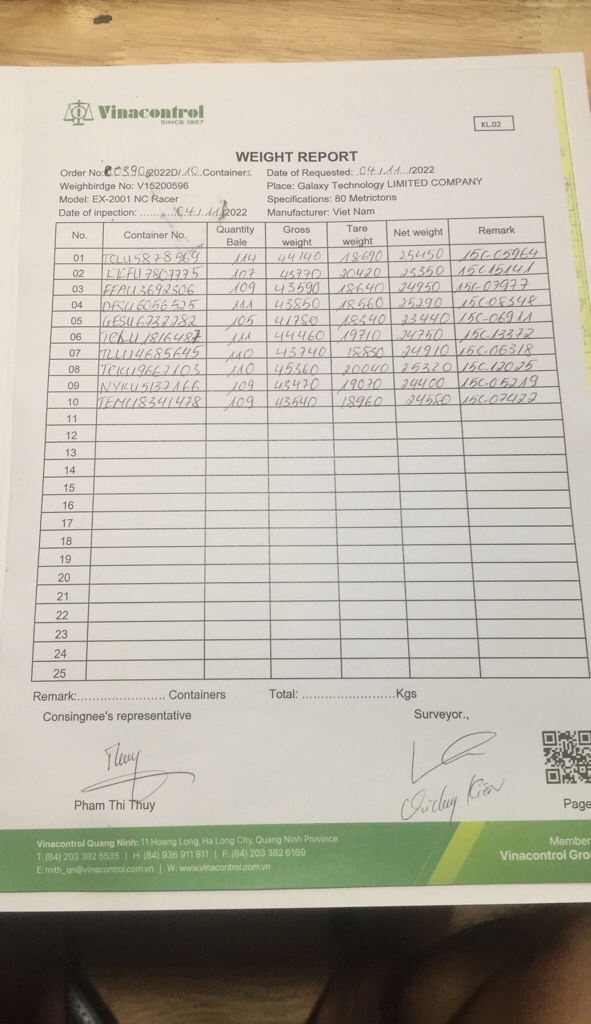 Vinacontrol
SINCE 1957
KL.02
WEIGHT REPORT
Order No: 00390/2022D/10 Containers Date of Requested: 04/11/2022
Weighbirdge No: V15200596 Place: Galaxy Technology LIMITED COMPANY
Model: EX-2001 NC Racer Specifications: 80 Metrictons
Date of inpection: ....... 04/11/2022 Manufacturer: Viet Nam
No. Container No. Quantity Bale Gross weight Tare weight Net weight Remark
01 TCLU5878569 114 44140 18690 25450 15C-05964
02 KKFU7807775 107 43770 20420 23350 15C15141
03 FFAU3692306 109 43590 18640 24950 15C-07977
04 DFSU6056525 111 43850 18560 25290 15C-08348
05 GESU6732282 105 41780 18340 23440 15C-06911
06 111 44460 19710 24750 15C-13372
07 TLLU4685645 110 43740 18830 24910 15C-06318
08 110 45360 20040 25320 15C-12025
09 NYKU5137166 109 43470 19070 24400 15C-05219
10 TEMU8341478 109 43540 18960 24580 15C-07422
11
12
13
14
15
16
17
18
19
20
21
22
23
24
25
Remark:....................... Containers Total: ........................Kgs
Consingnee's representative Surveyor.,
Thuy
Pham Thi Thuy
Page
Vinacontrol Quang Ninh: 11 Hoang Long, Ha Long City, Quang Ninh Province
T: (84) 203 382 5535 | H: (84) 936 911 811 | F: (84) 203 382 6169
E: nvth_qn@vinacontrol.com.vn | W: www.vinacontrol.com.vn
Member
Vinacontrol Gro